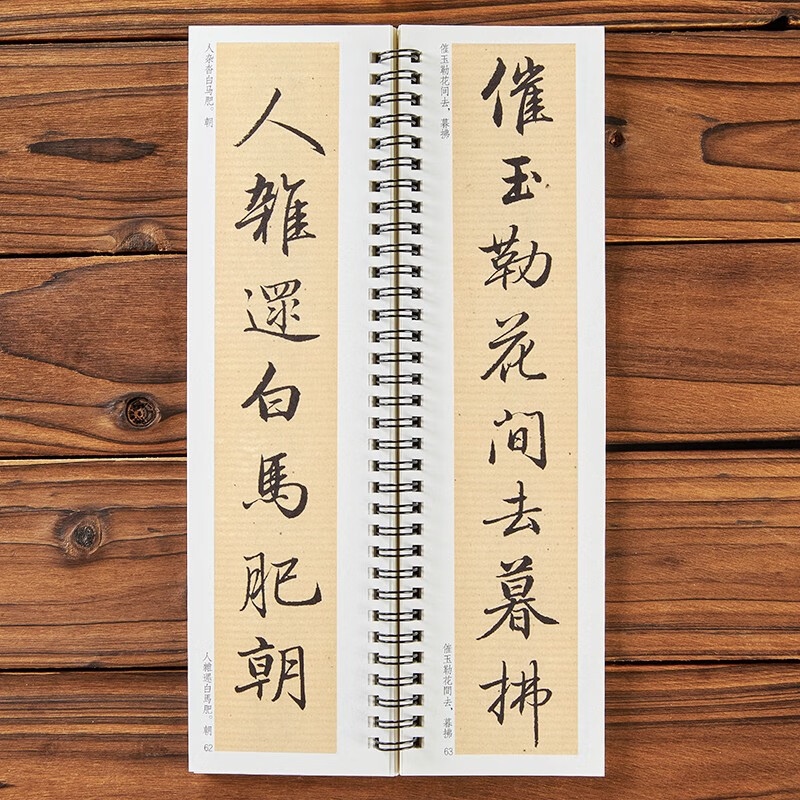 人杂沓白马肥。朝
人雜遝白馬肥朝
人雜遝白馬肥。朝
62
催玉勒花间去，暮拂
催玉勒花間去暮拂
催玉勒花間去，暮拂
63